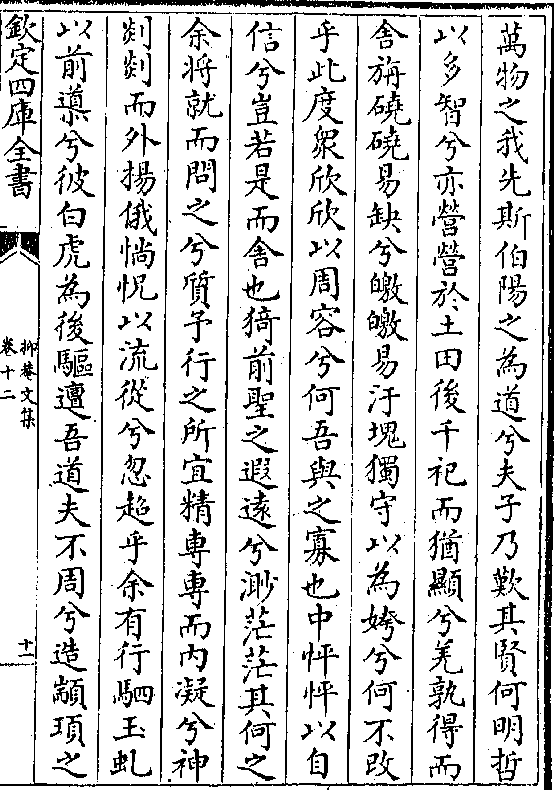 萬物之我先斯伯陽之為道兮夫子乃歎其賢何明哲
以多智兮亦營營於土田後千祀而猶顯兮羌孰得而
舍旃磽磽易缺兮皦皦易汙塊獨守以為姱兮何不改
乎此度衆欣欣以周容兮何吾與之寡也中怦怦以自
信兮豈若是而舍也猗前聖之遐遠兮渺茫茫其何之
余将就而問之兮質予行之所宜精專專而内凝兮神
剡剡而外揚俄惝怳以流從兮忽超乎余有行駟玉虬
以前導兮彼白虎為後驅邅吾道夫不周兮造顓頊之
欽定四庫全書
抑菴文集
卷十二
十一